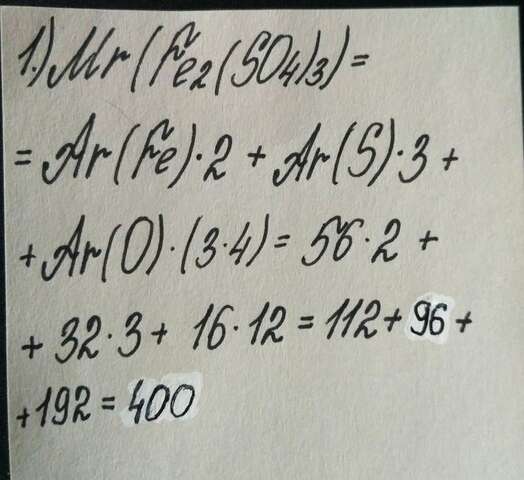 1.) Mr(Fe2(SO4)3)=
= Ar(Fe)·2 + Ar(S)·3 +
+ Ar(O)·(3·4) = 56·2 +
+ 32·3 + 16·12 = 112 + 96 +
+ 192 = 400